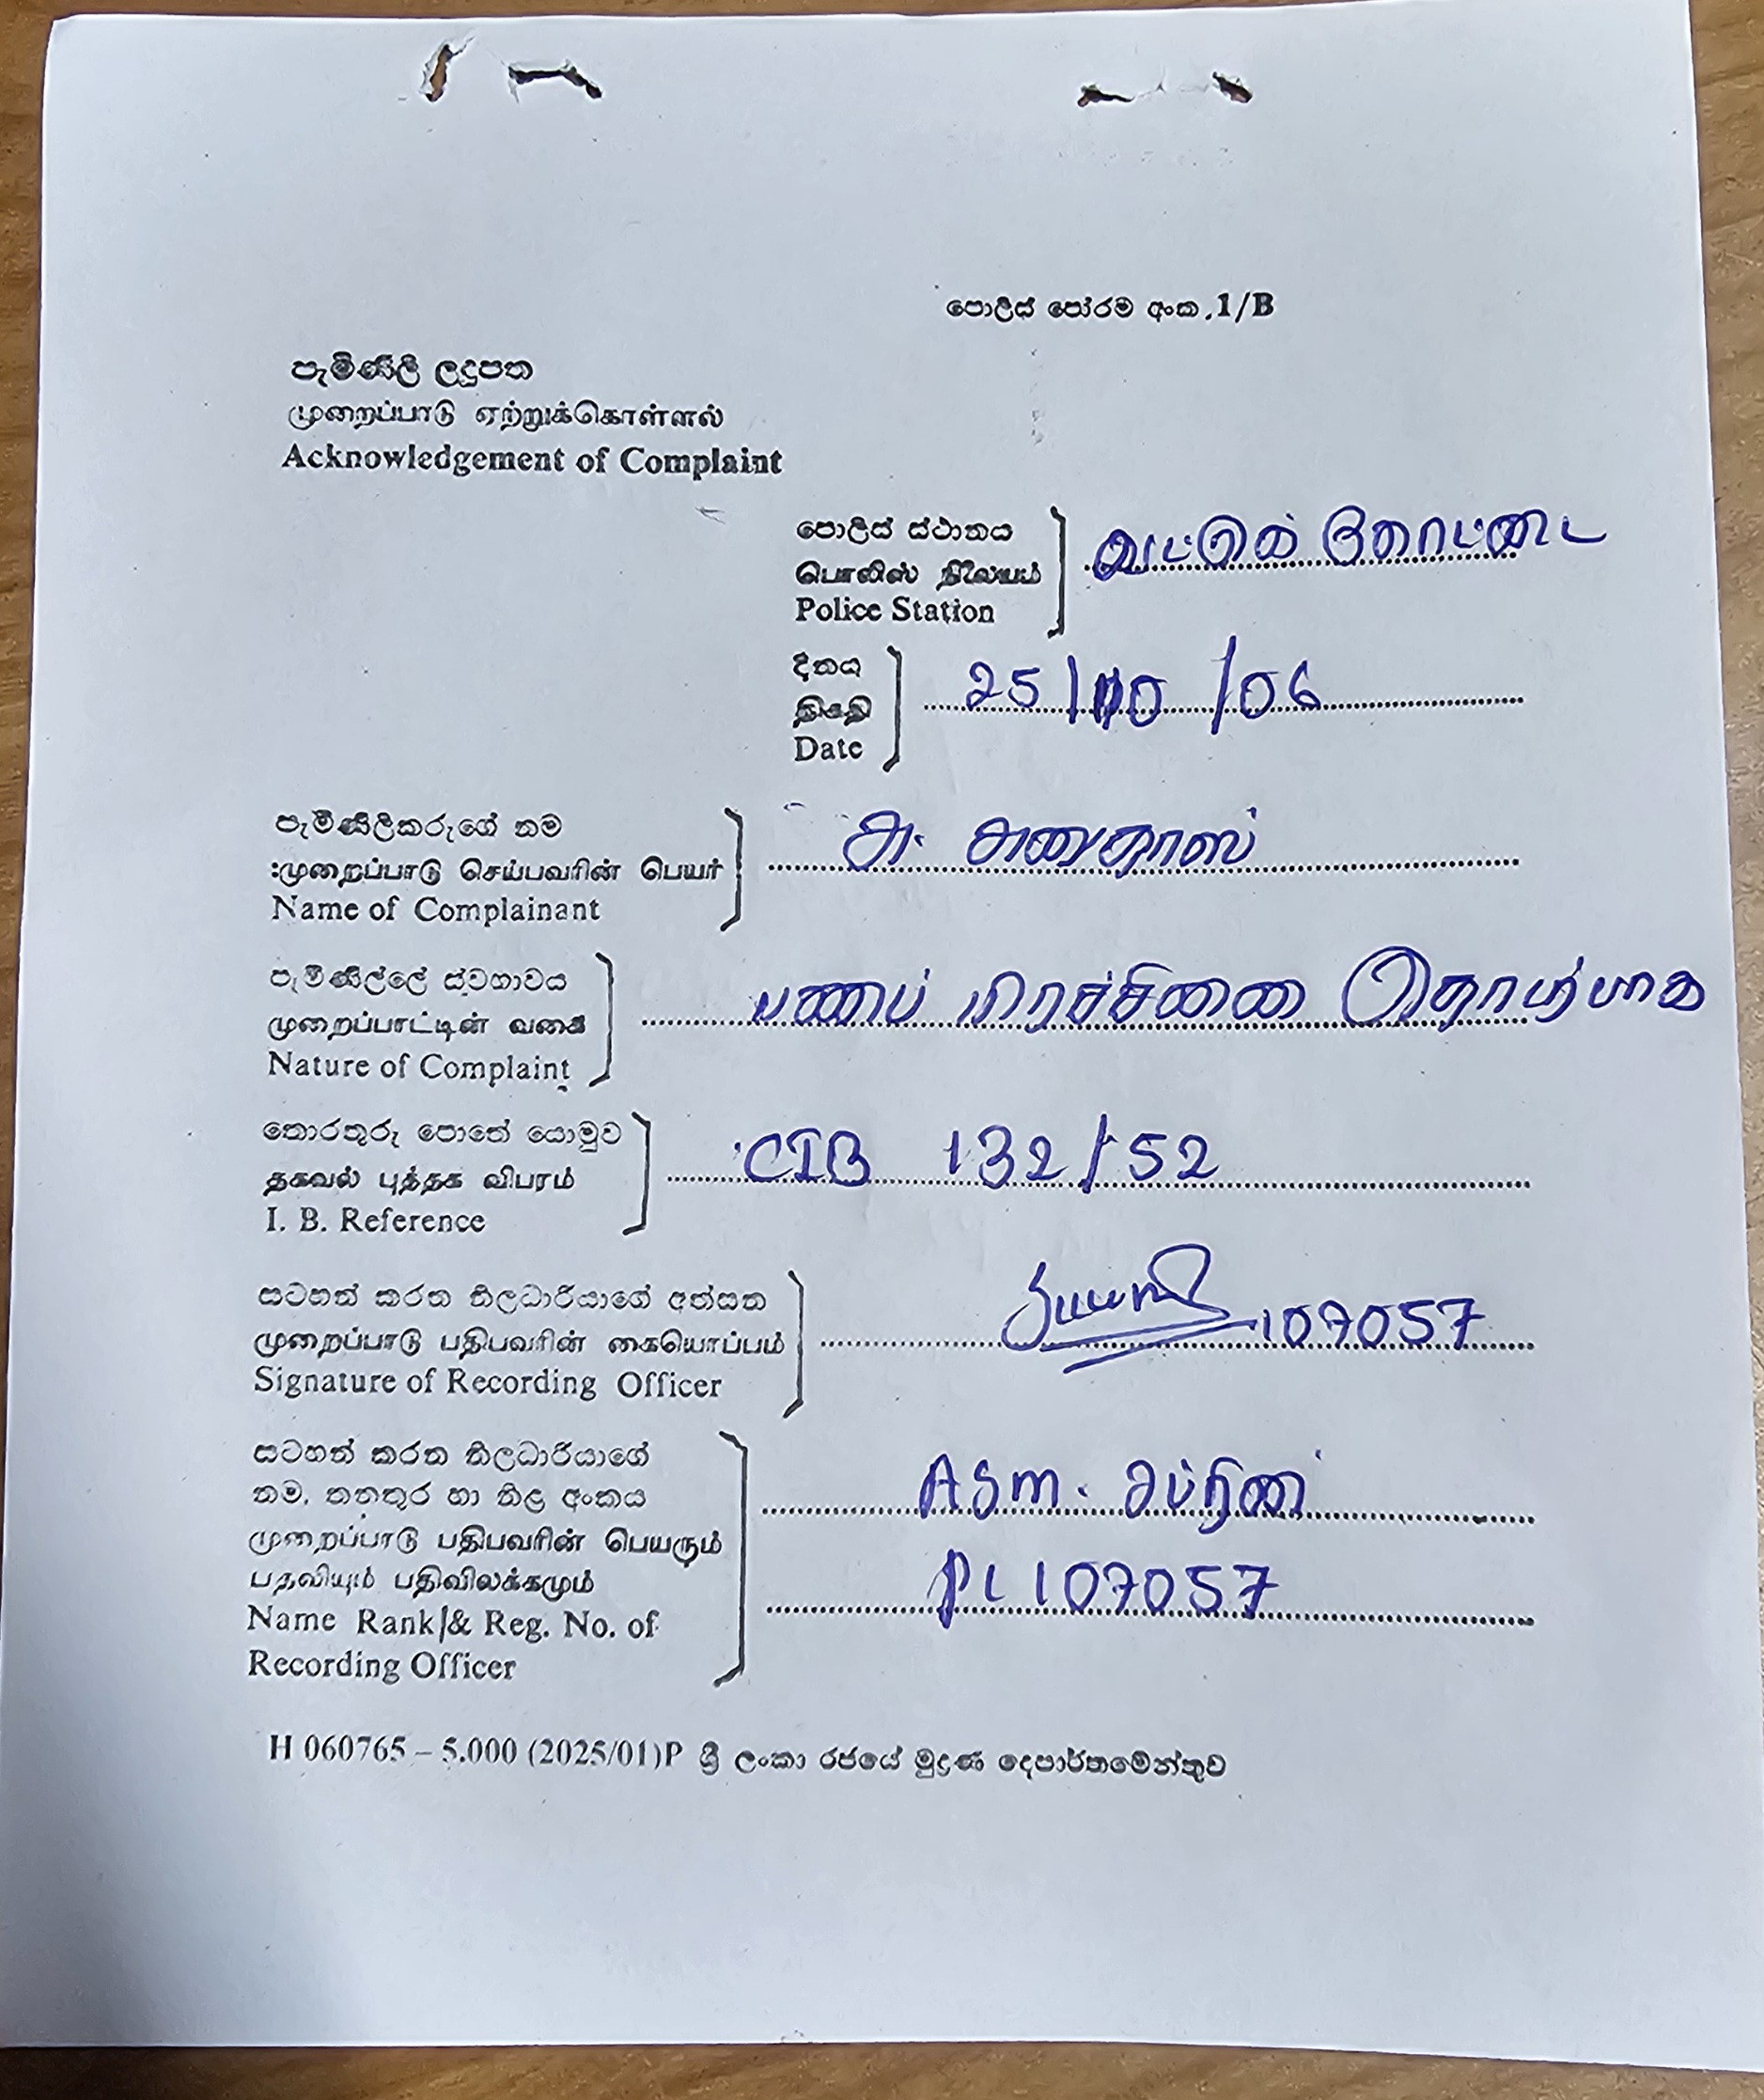 පොලිස් පෝරම අංක.1/B
පැමිණිලි ලදුපත
முறைப்பாடு ஏற்றுக்கொள்ளல்
Acknowledgement of Complaint
පොලිස් ස්ථානය
பொலிஸ் நிலையம்
Police Station
கோட்டை
දිනය
திகதி
Date
25/10/06
පැමිණිලිකරුගේ නම
:முறைப்பாடு செய்பவரின் பெயர்
Name of Complainant
පැමිණිල්ලේ ස්වභාවය
முறைப்பாட்டின் வகை
Nature of Complaint
பணப் பிரச்சினை தொடர்பாக
තොරතුරු පොතේ යොමුව
தகவல் புத்தக விபரம்
I. B. Reference
CIB 132/52
සටහන් කරන නිලධාරියාගේ අත්සන
முறைப்பாடு பதிபவரின் கையொப்பம்
Signature of Recording Officer
107057
සටහන් කරන නිලධාරියාගේ
නම, තනතුර හා නිල අංකය
முறைப்பாடு பதிபவரின் பெயரும்
பதவியும் பதிவிலக்கமும்
Name Rank/& Reg. No. of
Recording Officer
ASM.
PC 107057
H 060765 – 5.000 (2025/01)P ශ්‍රී ලංකා රජයේ මුද්‍රණ දෙපාර්තමේන්තුව